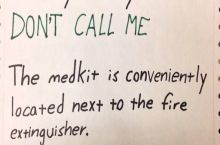 DON'T CALL ME
The medkit is conveniently
located next to the fire
extinguisher.